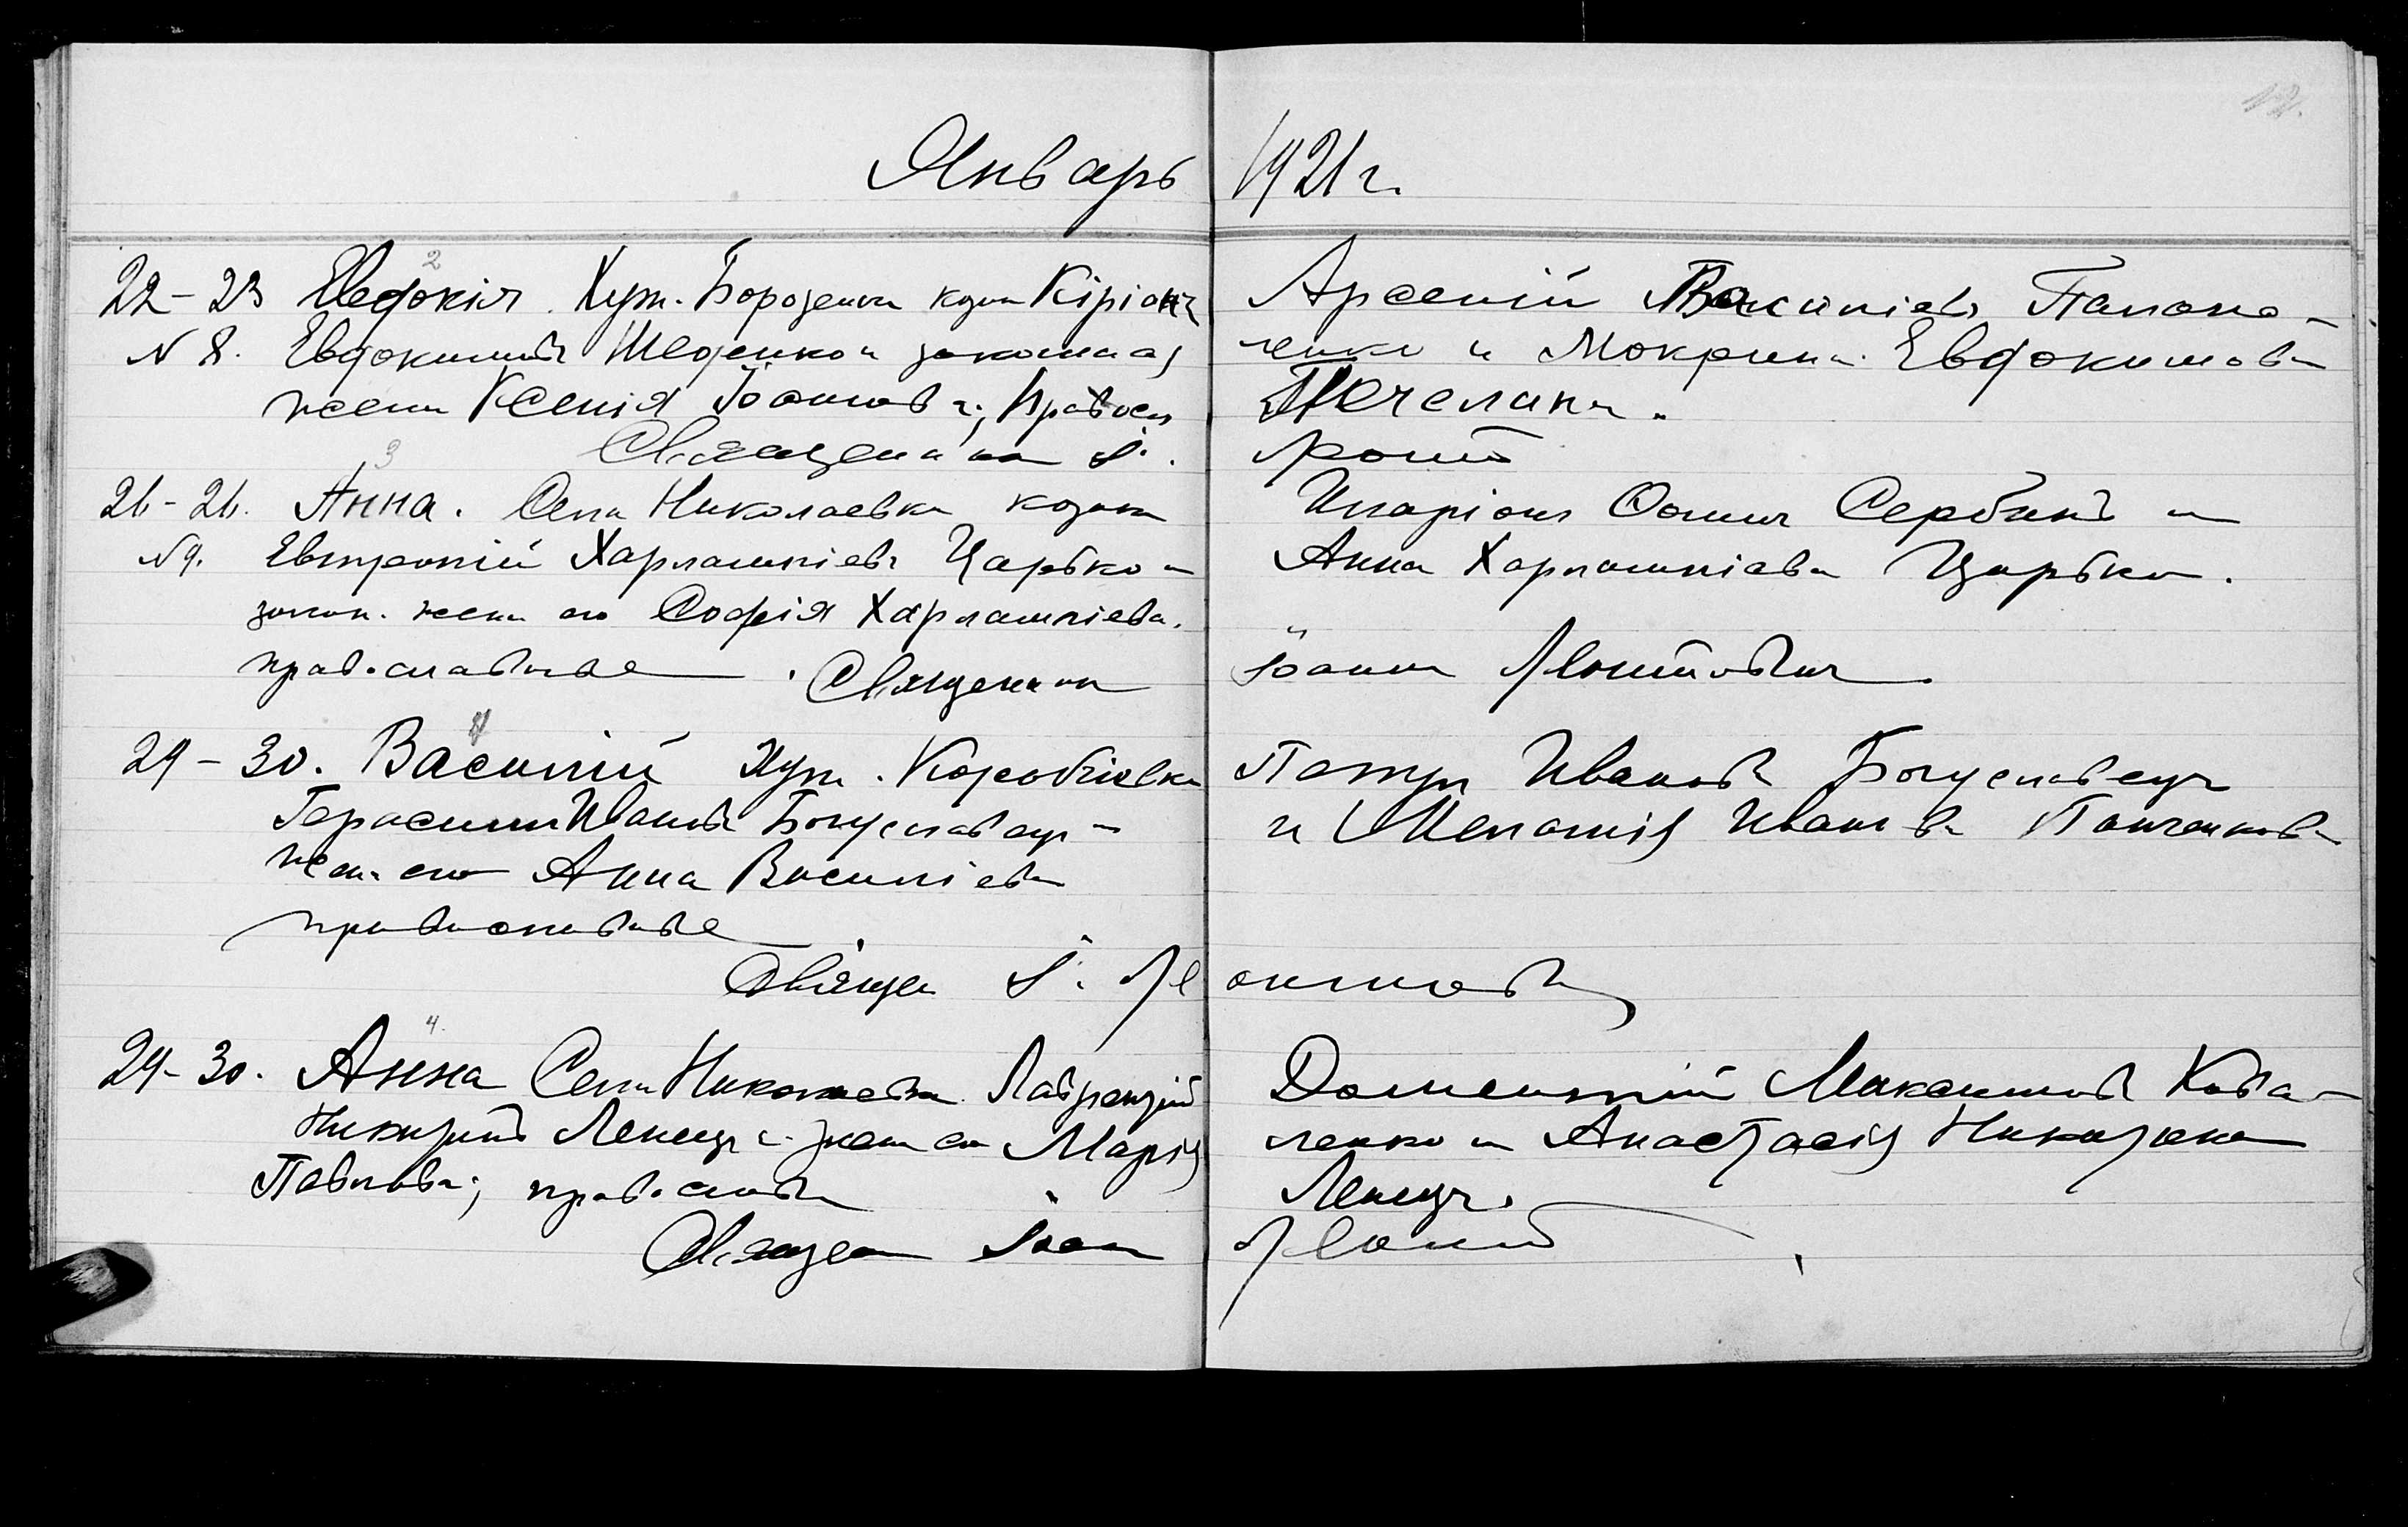 12.
Январь 1921 г.
2
22-23 Евдокія. Хут. Бороденки козак Кіріакъ
N 8. Евдокимовъ Шеденко и законная
жена Ксенія Іоаннова; Правосл
Священник І.
Арсеній Василіевъ Папоно-
ленко и Мокрина Евдокимова
Печелака.
3
26-26. Анна. Села Николаевки козак
N 9. Евтропій Харлампіевъ Царько и
закон. жена его Софія Харлампіева.
православные. Священник
Иларіонъ Сербинъ и
Анна Харлампіева Царько.
Іоанн Леонтовичъ.
4
29-30. Василій Хут. Коробковка
Герасимъ Ивановъ Богуславецъ и
жена его Анна Василіева
православные
Петръ Ивановъ Богуславецъ
и Меланія Иванова Панченкова
Священ І. Леонтовичъ
4.
29-30. Анна Села Николаевки Лаврентій
Никитинъ Ленецъ и жена его Марія
Павлова; православ
Священ Іоан
Дометій Максимовъ Кова-
ленко и Анастасія Никитина
Ленецъ.
Леонт